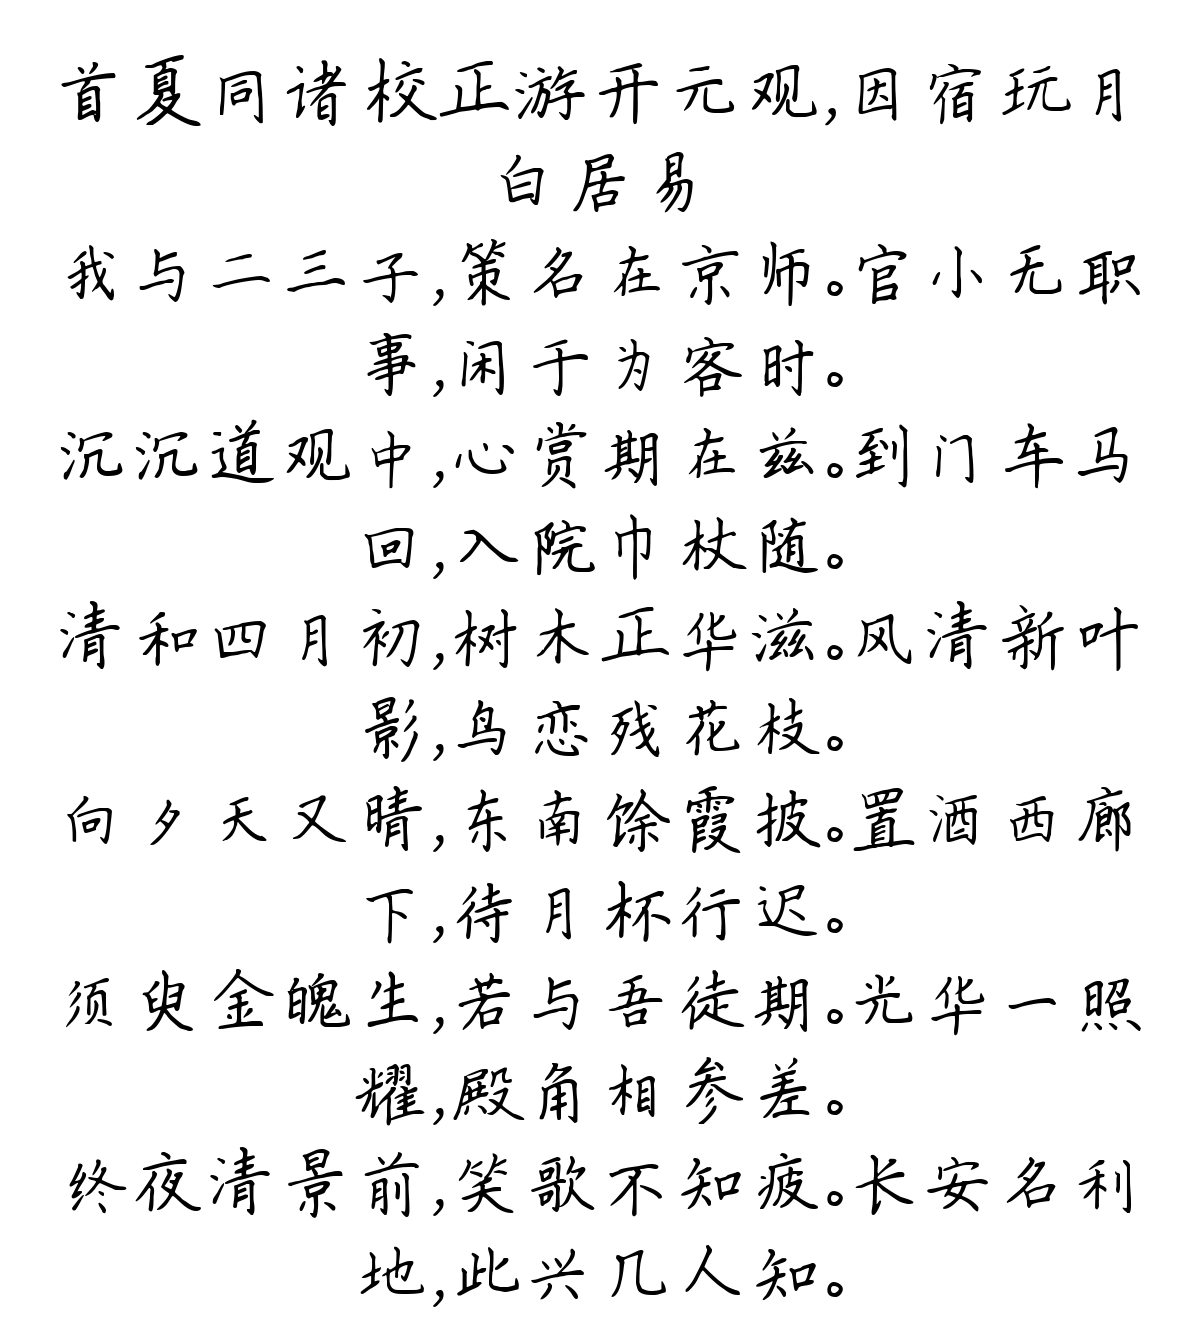 首夏同诸校正游开元观,因宿玩月
白居易
我与二三子,策名在京师。官小无职
事,闲于为客时。
沉沉道观中,心赏期在兹。到门车马
回,入院巾杖随。
清和四月初,树木正华滋。风清新叶
影,鸟恋残花枝。
向夕天又晴,东南馀霞披。置酒西廊
下,待月杯行迟。
须臾金魄生,若与吾徒期。光华一照
耀,殿角相参差。
终夜清景前,笑歌不知疲。长安名利
地,此兴几人知。